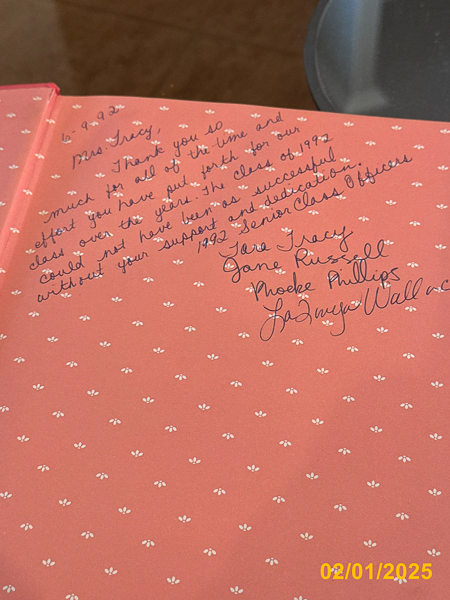 6-9-92
Mrs. Tracy,
Thank you so
much for all of the time and
effort you have put forth for our
class over the years. The class of 1992
could not have been as successful
without your support and dedication.
1992 Senior Class Officers
Tara Tracy
Jane Russell
Phoebe Phillips
LaTonya Wallace
02/01/2025